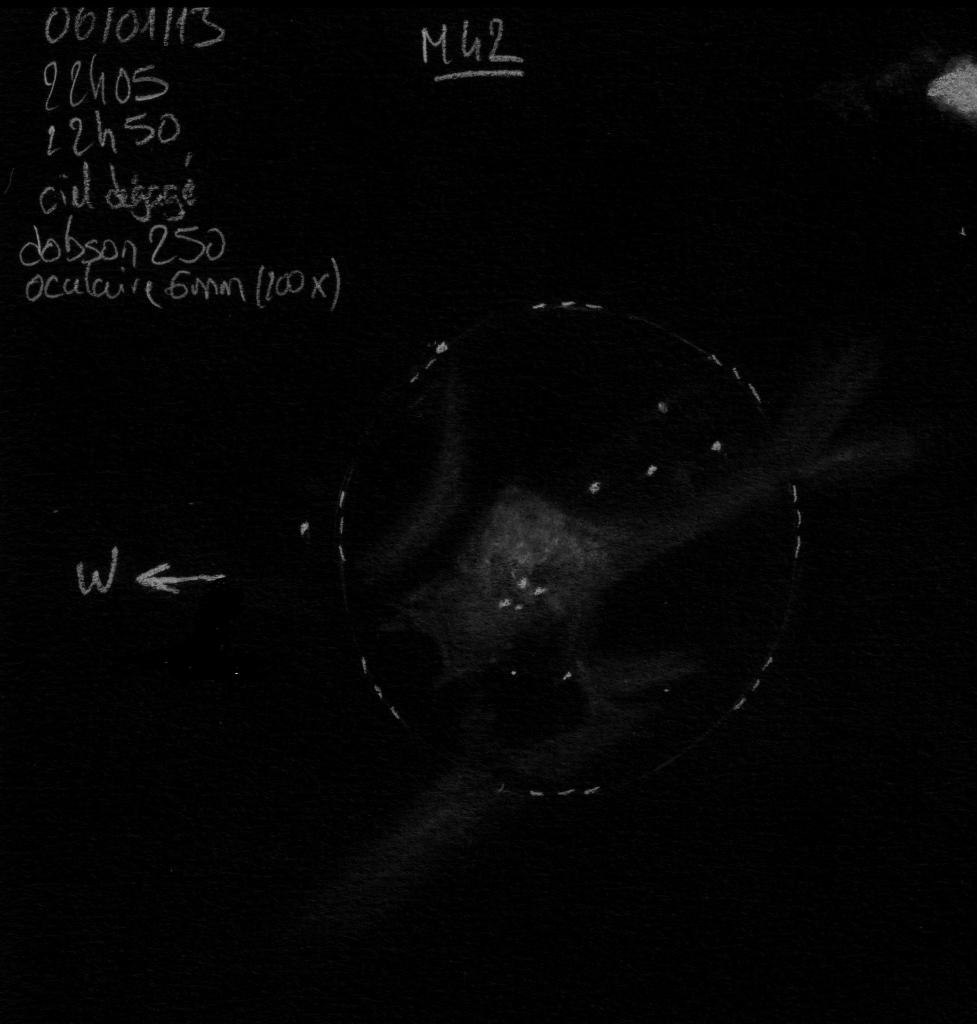 06/01/13
M42
22h05
22h50
ciel dégagé
dobson 250
oculaire 6mm (200x)
W